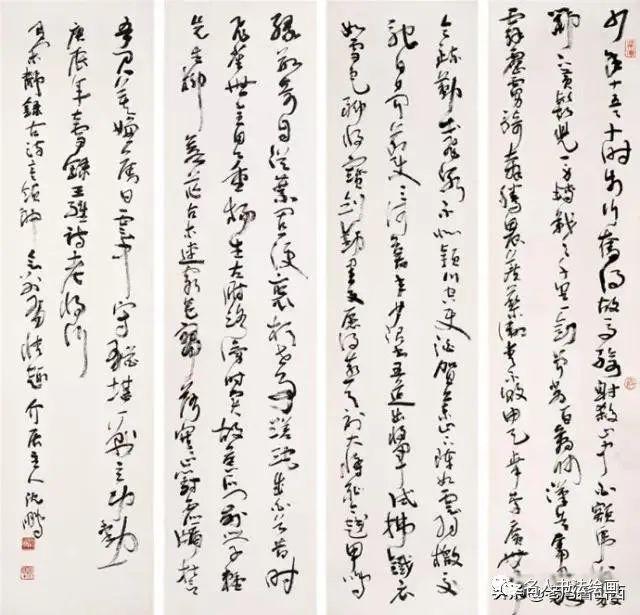 少年十五二十时步行夺得胡马骑射杀山中白额虎肯数
邺下黄须儿一身转战三千里一剑曾当百万师汉兵奋迅如
霹雳虏骑奔腾畏蒺藜卫青不败由天幸李广无功
令疏勒出飞泉不似颍川空使酒贺兰山下阵如云羽檄交
驰日夕闻节使三河募年少诏书五道出将军试拂铁衣
如雪色聊持宝剑动星文愿得燕弓射大将耻令越甲鸣
缘数奇自从弃置便衰朽世事蹉跎成白首昔时
飞雀无全目今日垂杨生左肘路旁时卖故侯瓜门前学种
先生柳苍茫古木连穷巷寥落寒山对虚牖誓
吾君莫嫌旧日云中守犹堪一战立功勋
庚辰年录王维诗老将行
静录古诗介居主人沈鹏
名人书法绘画